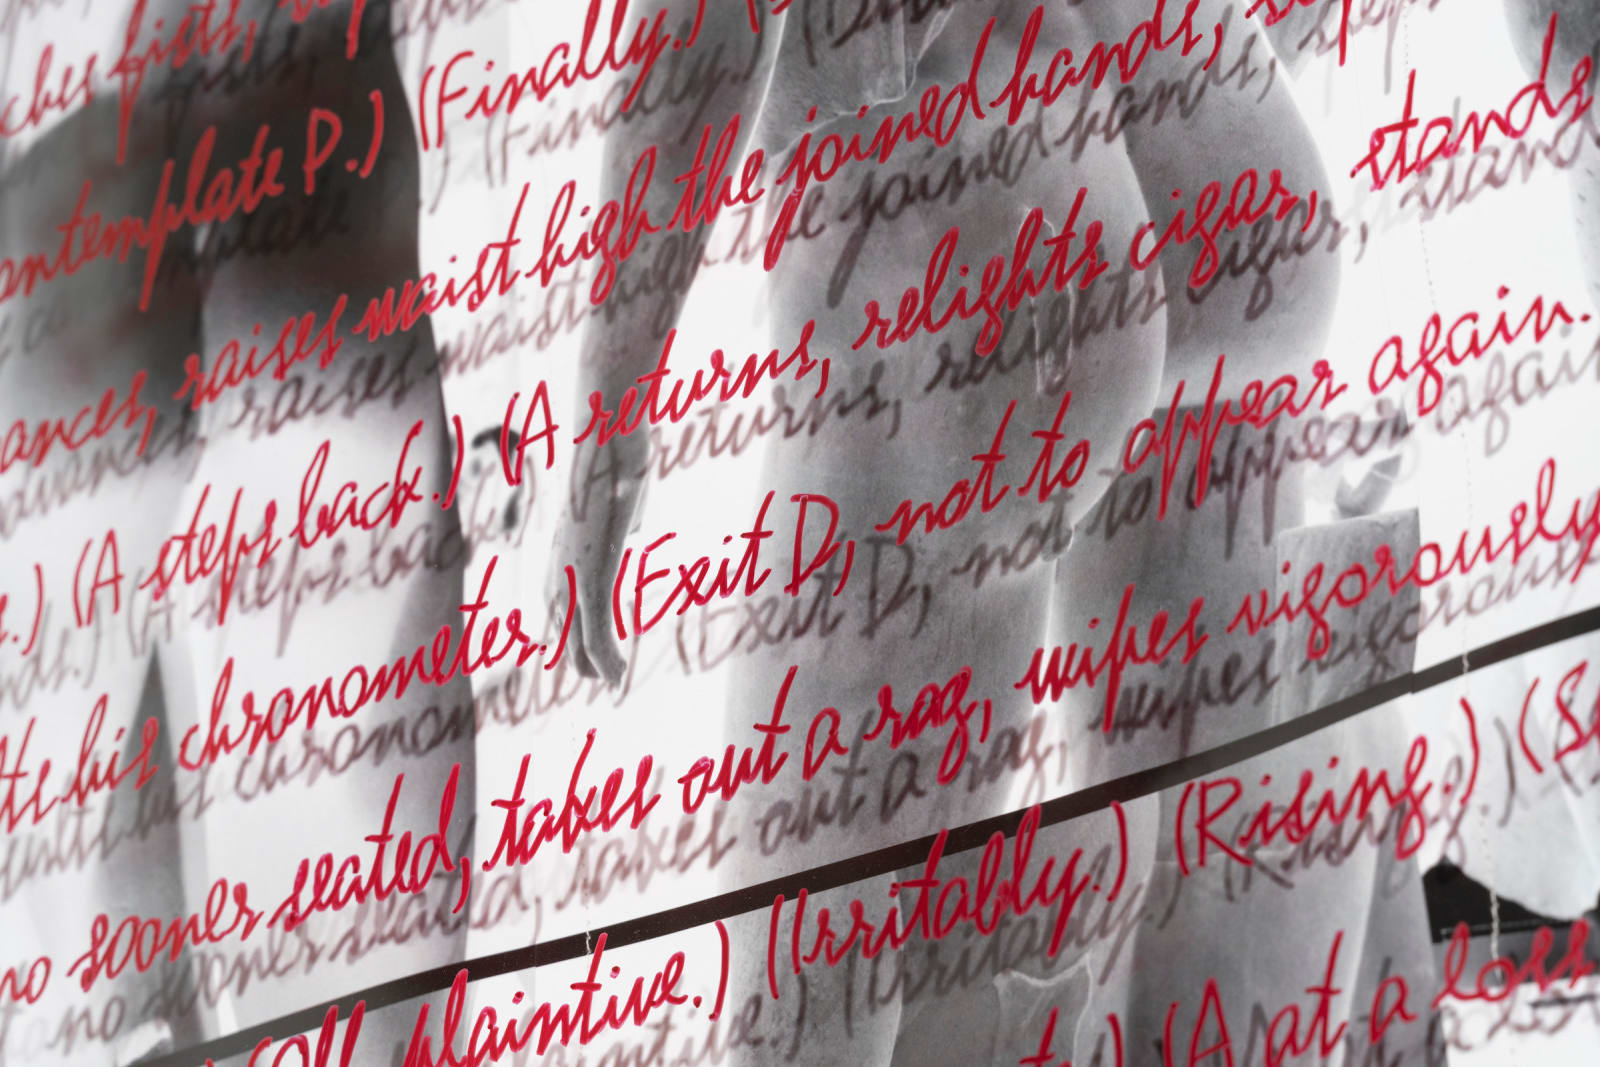 ches fists,
ontemplate P.) (Finally.) (
ances, raises waist high the joined hands,
.) (A steps back.) (A returns, relights cigar, stands
his chronometer.) (Exit D, not to appear again.
no sooner seated, takes out a rag, wipes vigorously
plaintive.) (Irritably.) (Rising.) (S
) (A at a loss